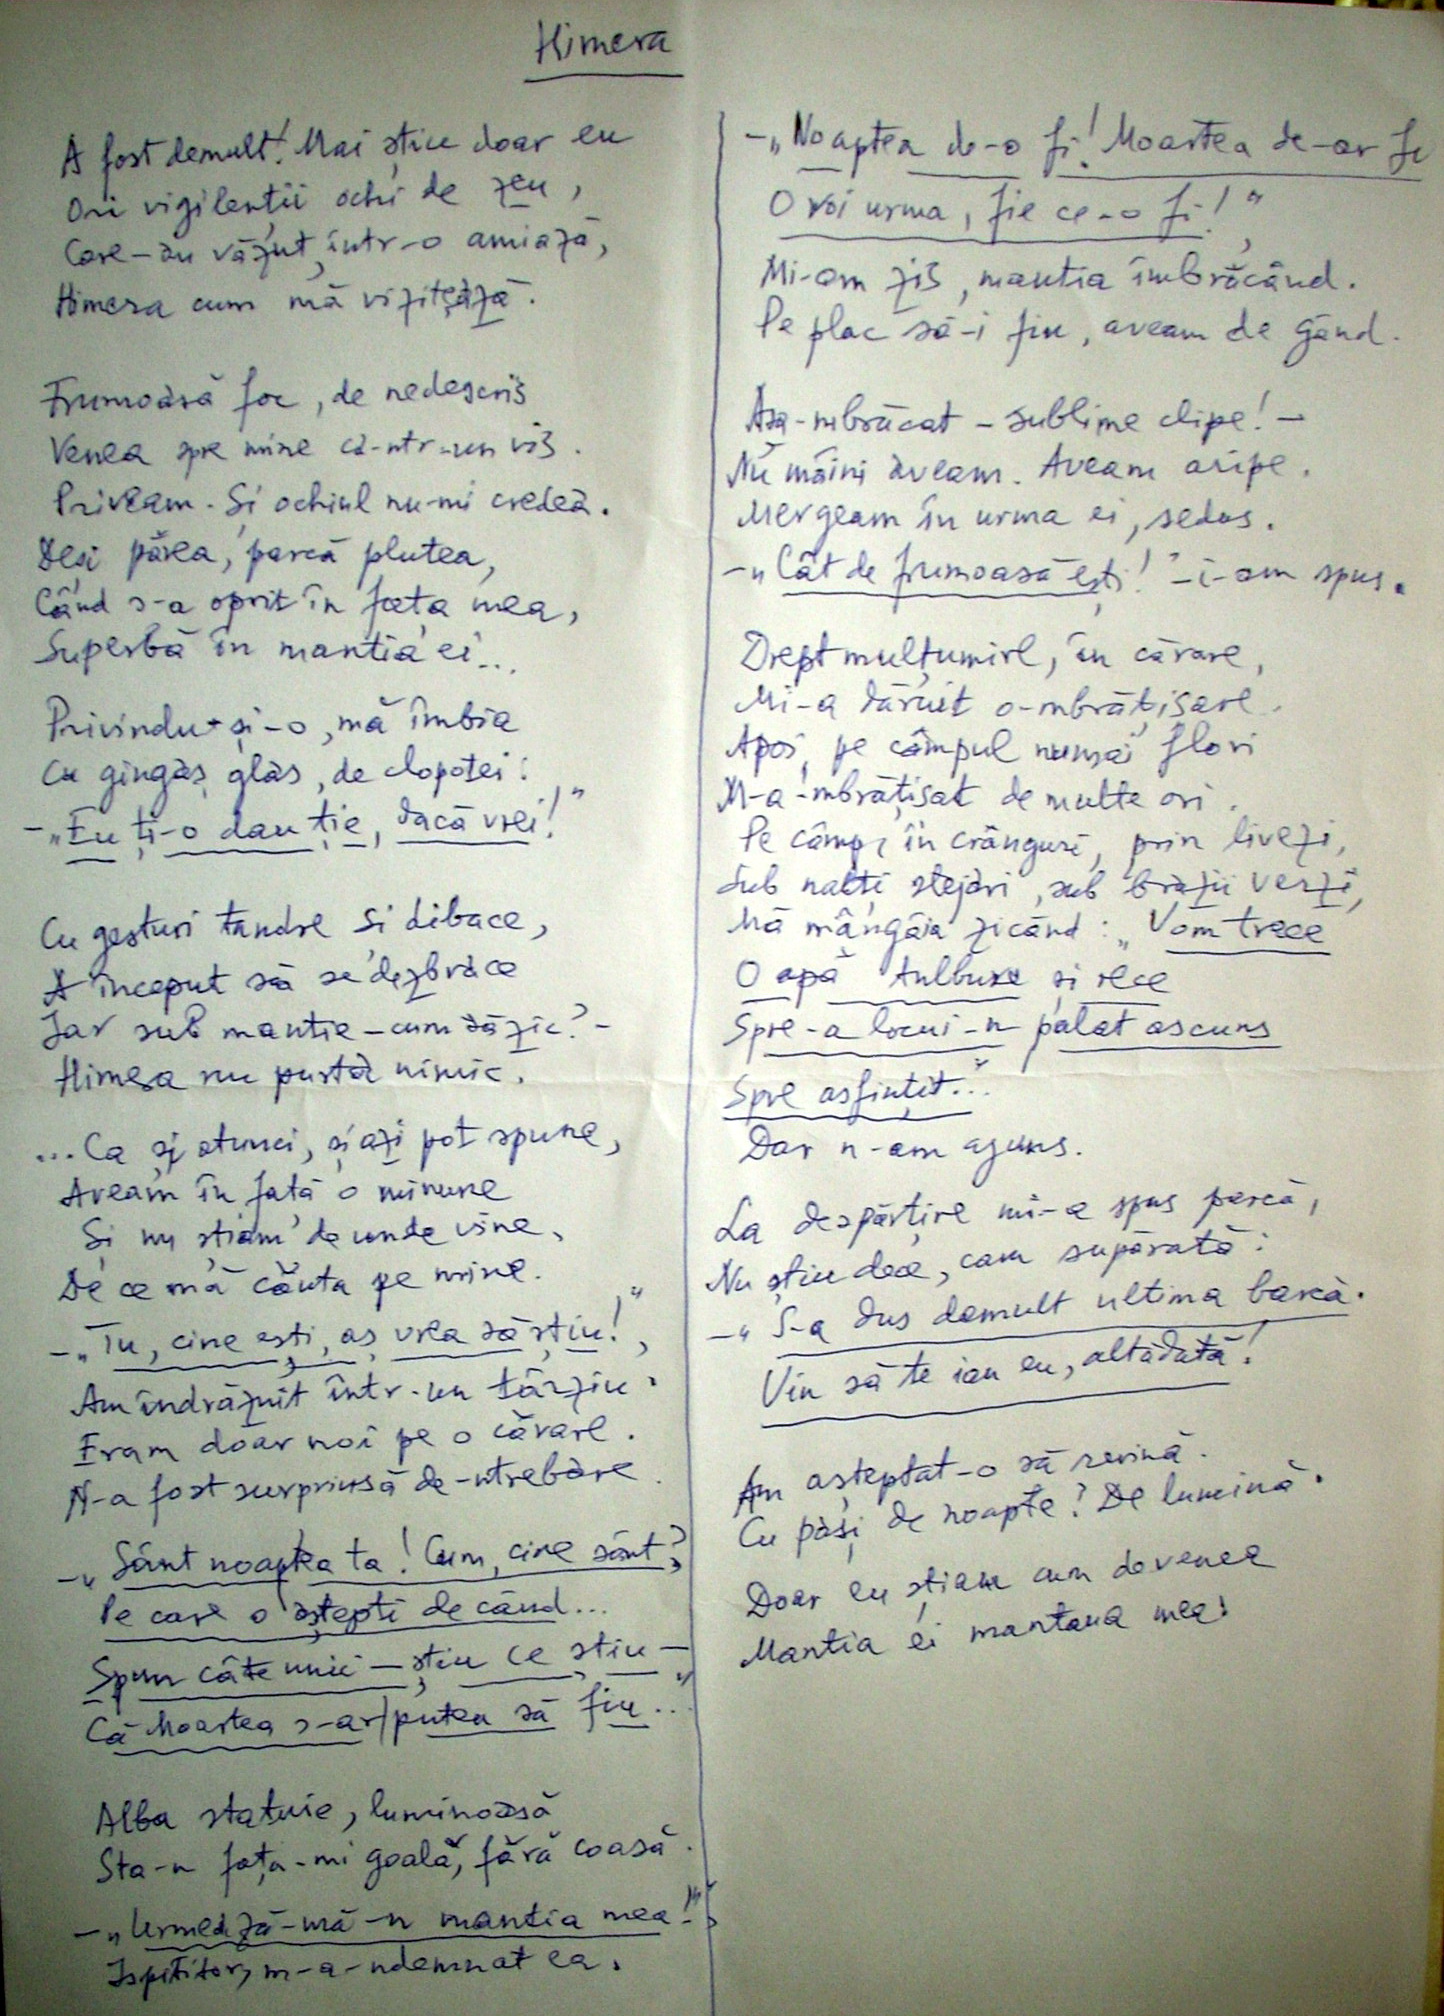 Himera
A fost demult! Mai știu doar eu
Ori vigilenții ochi de zeu,
Care-au văzut, într-o amiază,
Himera cum mă vizitează.
Frumoasă foc, de nedescris
Venea spre mine ca-ntr-un vis.
Priveam. Și ochiul nu-mi credea.
Deși părea, parcă plutea,
Când s-a oprit în fața mea,
Superbă în mantia ei...
Privindu-și-o, mă îmbia
Cu gingaș glas, de clopoței:
-„Eu ți-o dau ție, dacă vrei!"
Cu gesturi tandre și dibace,
A început să se dezbrace
Iar sub mantie – cum să zic? –
Himera nu purta nimic.
...Ca și atunci, și azi pot spune,
Aveam în față o minune
Și nu știam de unde vine,
De ce mă căuta pe mine.
-„Tu, cine ești, aș vrea să știu!",
Am îndrăznit într-un târziu.
Eram doar noi pe o cărare.
N-a fost surprinsă de-ntrebare.
-„Sânt noaptea ta! Cum, cine sânt?
Pe care o aștepți de când...
Spun câte unii – știu ce știu –
Că Moartea s-ar putea să fiu..."
Alba statuie, luminoasă
Sta-n fața-mi goală, fără coasă.
-„Urmează-mă-n mantia mea!",
Ispititor, m-a-ndemnat ea.
-„Noaptea de-o fi! Moartea de-ar fi
O voi urma, fie ce-o fi!",
Mi-am zis, mantia îmbrăcând.
Pe plac să-i fiu, aveam de gând.
Așa-mbrăcat – sublime clipe! –
Nu mâini aveam. Aveam aripe.
Mergeam în urma ei, sedus.
-„Cât de frumoasă ești!" – i-am spus.
Drept mulțumire, în cărare,
Mi-a dăruit o-mbrățișare.
Apoi, pe câmpul numai flori
M-a-mbrățișat de multe ori.
Pe câmp, în crânguri, prin livezi,
Sub nalți stejari, sub brazii verzi,
Mă mângâia zicând: „Vom trece
O apă tulbure și rece
Spre-a locui-n palat ascuns
Spre asfințit..."
Dar n-am ajuns.
La despărțire mi-a spus parcă,
Nu știu de ce, cam supărată:
-„S-a dus demult ultima barcă.
Vin să te iau eu, altădată!
Am așteptat-o să revină.
Cu pași de noapte? De lumină.
Doar eu știam cum devenea
Mantia ei mantaua mea!